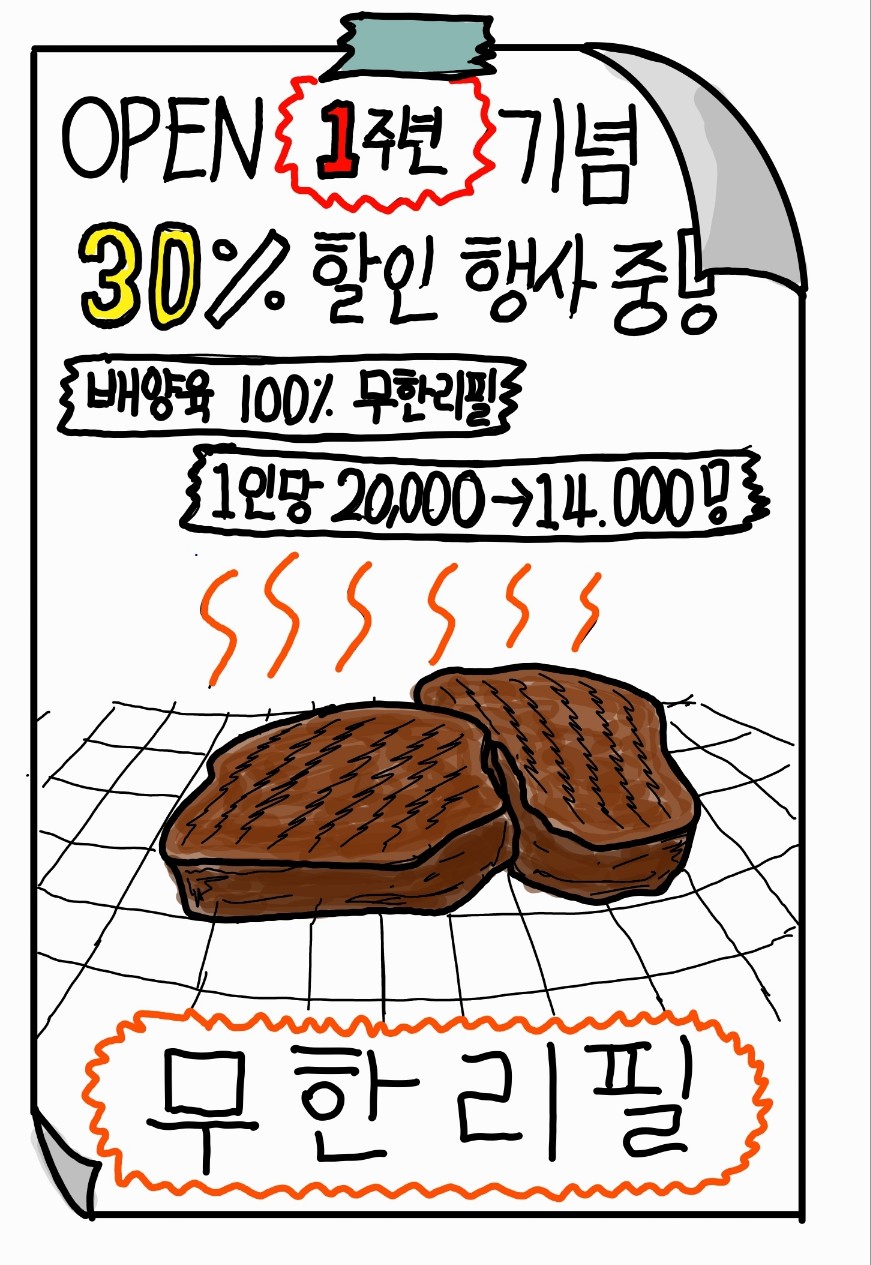 OPEN 1주년 기념
30% 할인 행사 중!
배양육 100% 무한리필
1인당 20,000→14.000!
무한리필